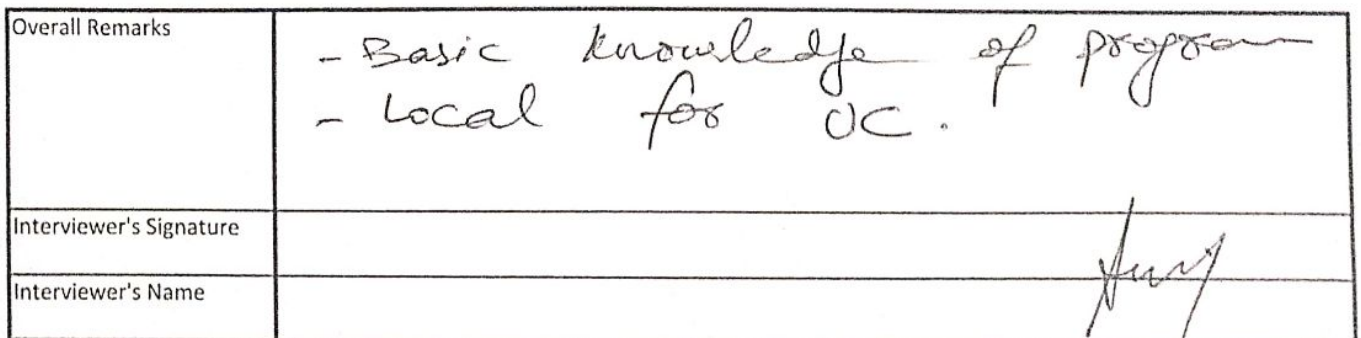 Overall Remarks
- Basic knowledge of program
- Local for UC.
Interviewer's Signature
Interviewer's Name